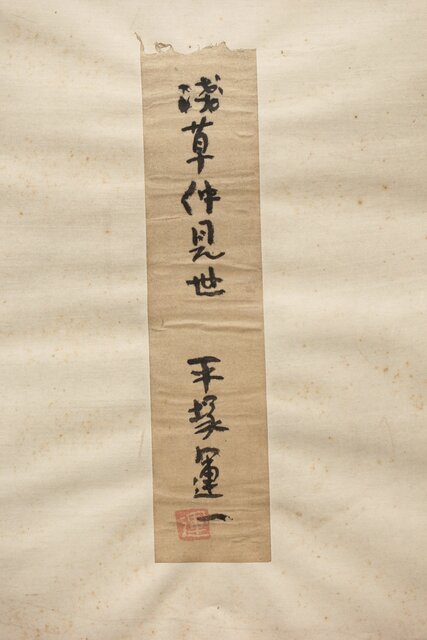 淺草仲見世　平塚運一